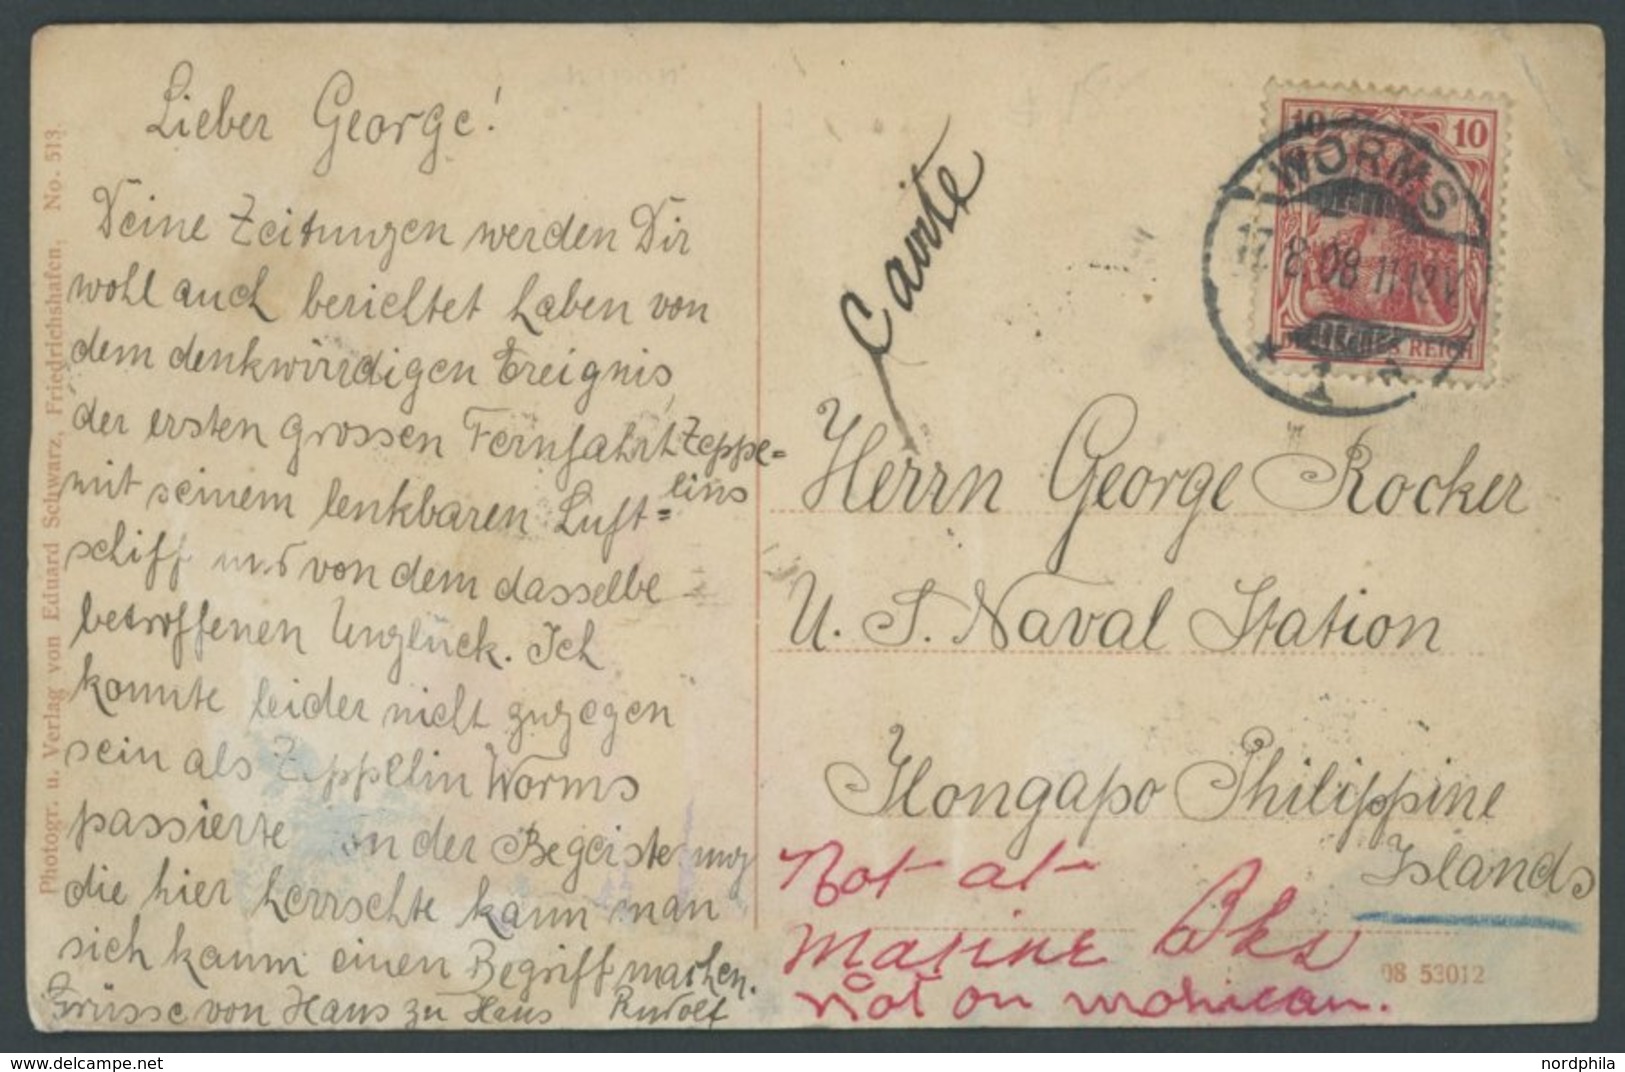 Lieber George!
Deine Zeitungen werden Dir
wohl auch berichtet haben von
dem denkwürdigen Ereignis
der ersten grossen Fernfahrt Zeppe=
lins
mit seinem lenkbaren Luft=
schiff und von dem dasselbe
betroffenen Unglück. Ich
konnte leider nicht zugegen
sein als Zeppelin Worms
passierte von der Begeisterung
die hier herrschte kann man
sich kaum einen Begriff machen.
Grüsse von Haus zu Haus Rudolf
Photogr. u. Verlag von Eduard Schwarz, Friedrichshafen, No. 513.
Cavite
10 10
DEUTSCHES REICH
WORMS
17.8.08.11-12V
* 1
Herrn George Rocker
U. S. Naval Station
Olongapo Philippine
Islands
Not at
Marine Bks
Not on Mohican.
08 53012
nordphila